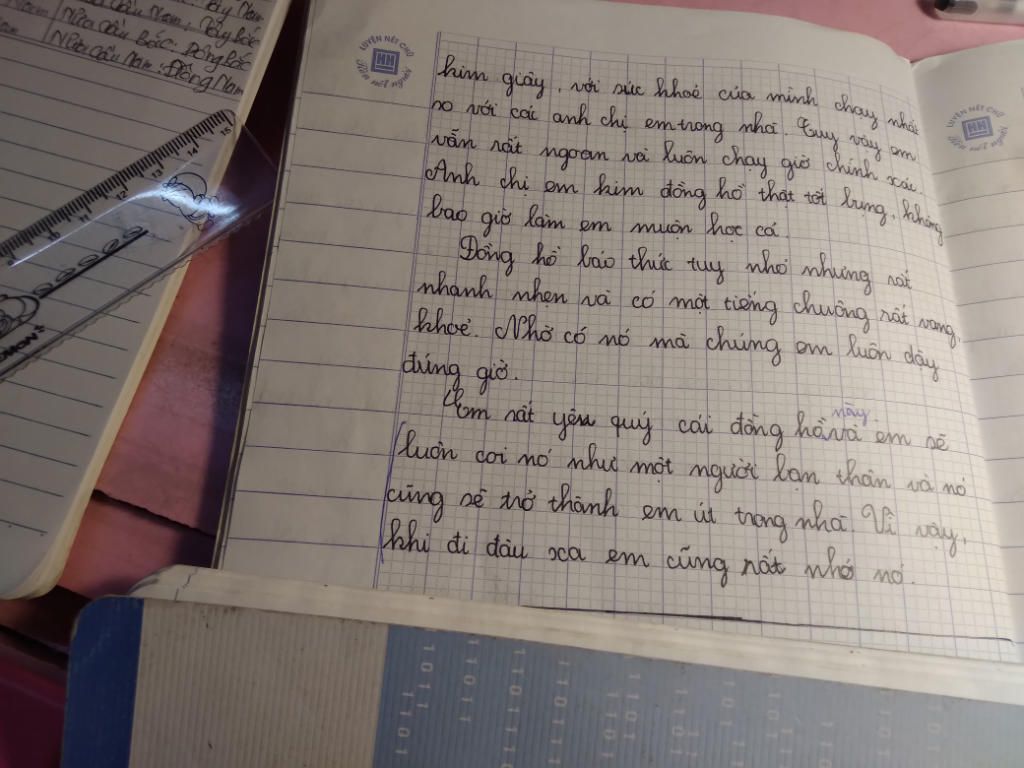 Nửa cầu Bắc: Đông Bắc
Nửa cầu Nam: Đông Nam
LUYỆN NÉT CHỮ
HH
Rèn nết người
kim giây, với sức khoẻ của mình chạy nhất
so với các anh chị em trong nhà. Tuy vậy em
vẫn rất ngoan và luôn chạy giờ chính xác.
Anh chị em kim đồng hồ thật tốt bụng, không
bao giờ làm em muộn học cả.
Đồng hồ báo thức tuy nhỏ nhưng rất
nhanh nhẹn và có một tiếng chuông rất vang,
khoẻ. Nhờ có nó mà chúng em luôn dậy
đúng giờ.
Em rất yêu quý cái đồng hồ này và em sẽ
luôn coi nó như một người bạn thân và nó
cũng sẽ trở thành em út trong nhà. Vì vậy,
khi đi đâu xa em cũng rất nhớ nó.
LUYỆN NÉT CHỮ
HH
Rèn nết người
11 12 13 14 15